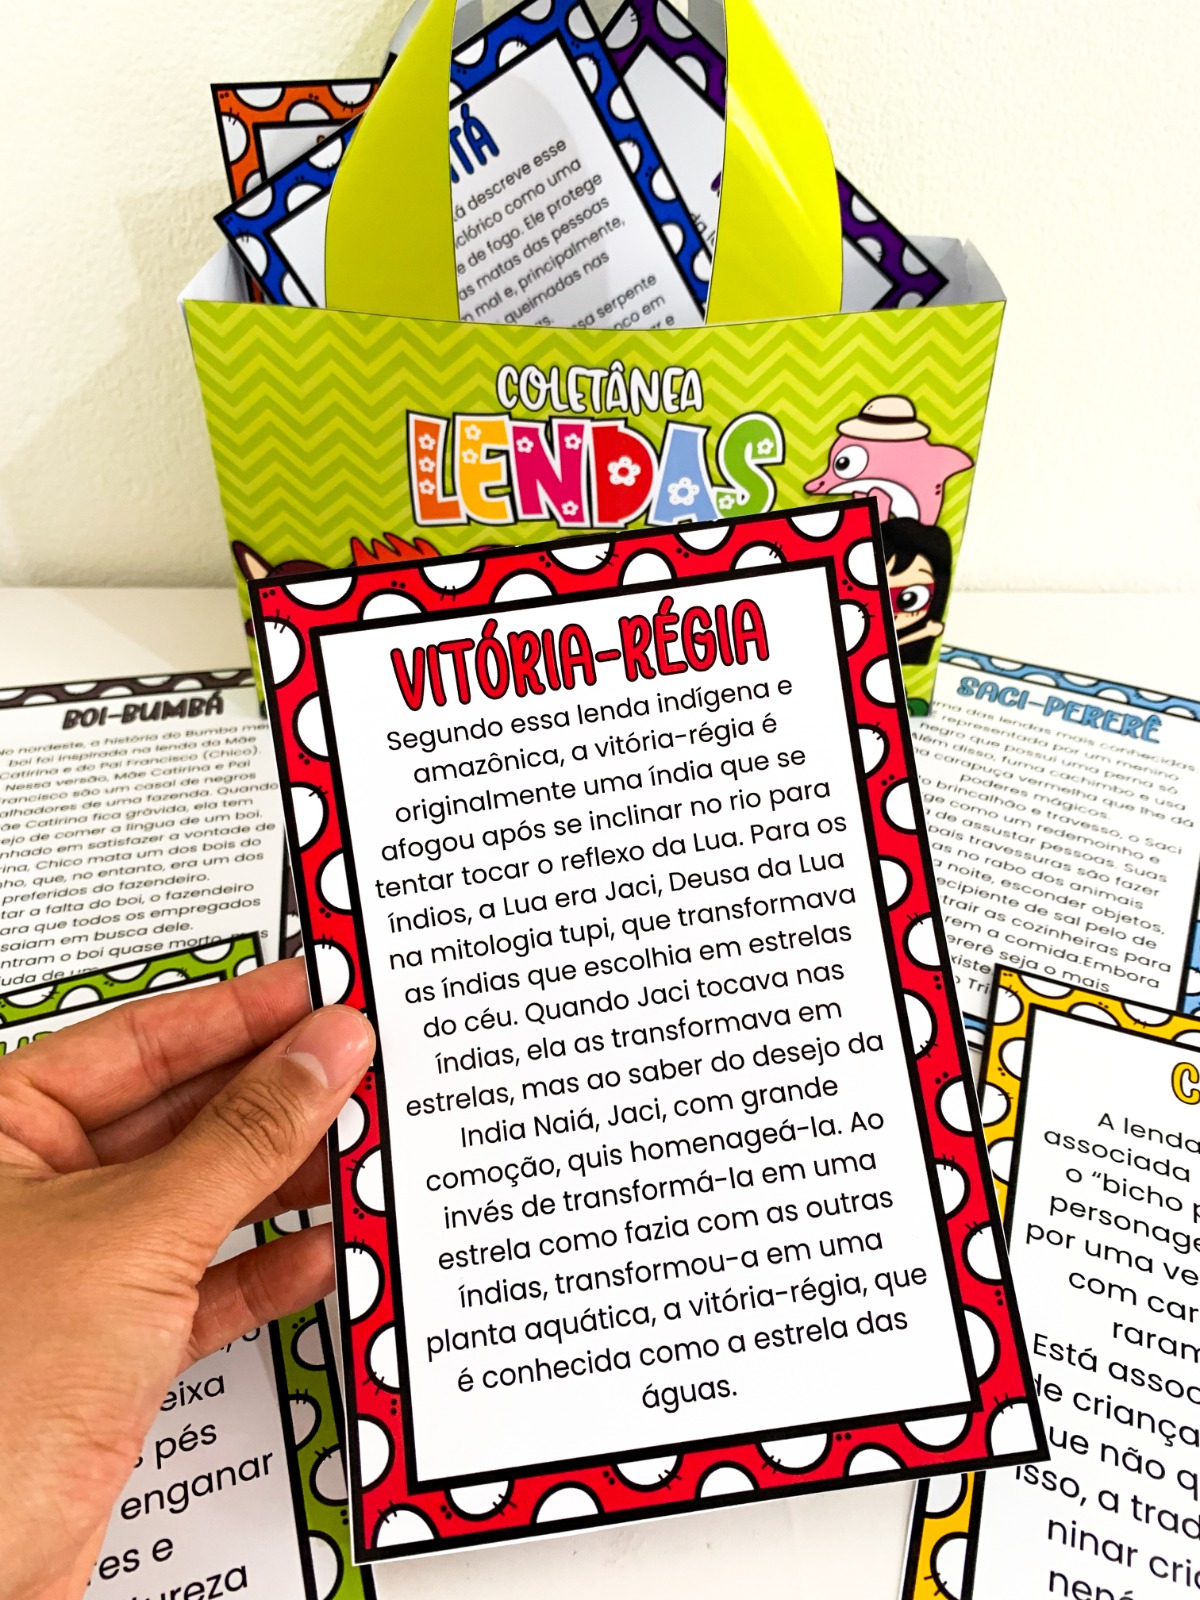 TÁ
á descreve esse
clórico como uma
e de fogo. Ele protege
as matas das pessoas
mal e, principalmente,
queimadas nas
serpente
em
e
COLETÂNEA
LENDAS
VITÓRIA-RÉGIA
Segundo essa lenda indígena e
amazônica, a vitória-régia é
originalmente uma índia que se
afogou após se inclinar no rio para
tentar tocar o reflexo da Lua. Para os
índios, a Lua era Jaci, Deusa da Lua
na mitologia tupi, que transformava
as índias que escolhia em estrelas
do céu. Quando Jaci tocava nas
índias, ela as transformava em
estrelas, mas ao saber do desejo da
India Naiá, Jaci, com grande
comoção, quis homenageá-la. Ao
invés de transformá-la em uma
estrela como fazia com as outras
índias, transformou-a em uma
planta aquática, a vitória-régia, que
é conhecida como a estrela das
águas.
BOI-BUMBÁ
No nordeste, a história do Bumba meu
boi foi inspirada na lenda da Mãe
Catirina e do Pai Francisco (Chico).
Nessa versão, Mãe Catirina e Pai
Francisco são um casal de negros
alhadores de uma fazenda. Quando
Mãe Catirina fica grávida, ela tem
ejo de comer a língua de um boi.
nhado em satisfazer a vontade de
rina, Chico mata um dos bois do
ho, que, no entanto, era um dos
preferidos do fazendeiro.
tar a falta do boi, o fazendeiro
ara que todos os empregados
saiam em busca dele.
ntram o boi quase morto, mas
uda de
SACI-PERERÊ
uma das lendas mais conhecidas
representada por um menino
negro que possui uma perna só.
Além disso, fuma cachimbo e usa
carapuça vermelha que lhe dá
poderes mágicos.
brincalhão e travesso, o Saci
ge como um redemoinho e
de assustar pessoas. Suas
travessuras são fazer
as no rabo dos animais
a noite, esconder objetos,
ecipiente de sal pelo de
trair as cozinheiras para
rem a comida.Embora
ererê seja o mais
existe
o Tri
eixa
pés
enganar
res e
ureza
C
A lenda
associada
o “bicho p
personage
por uma ve
com car
raram
Está assoc
de criança
ue não q
isso, a trad
ninar cria
nené